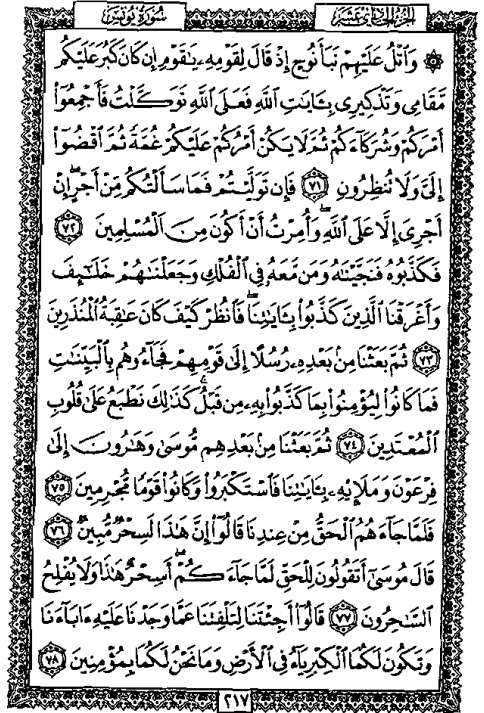 سُورَةُ يُونُسَ
الجُزْءُ الحَادِي عَشَرَ
۞ وَٱتْلُ عَلَيْهِمْ نَبَأَ نُوحٍ إِذْ قَالَ لِقَوْمِهِۦ يَٰقَوْمِ إِن كَانَ كَبُرَ عَلَيْكُم
مَّقَامِى وَتَذْكِيرِى بِـَٔايَٰتِ ٱللَّهِ فَعَلَى ٱللَّهِ تَوَكَّلْتُ فَأَجْمِعُوٓا۟
أَمْرَكُمْ وَشُرَكَآءَكُمْ ثُمَّ لَا يَكُنْ أَمْرُكُمْ عَلَيْكُمْ غُمَّةً ثُمَّ ٱقْضُوٓا۟
إِلَىَّ وَلَا تُنظِرُونِ ﴿٧١﴾ فَإِن تَوَلَّيْتُمْ فَمَا سَأَلْتُكُم مِّنْ أَجْرٍ ۖ إِنْ
أَجْرِىَ إِلَّا عَلَى ٱللَّهِ ۖ وَأُمِرْتُ أَنْ أَكُونَ مِنَ ٱلْمُسْلِمِينَ ﴿٧٢﴾
فَكَذَّبُوهُ فَنَجَّيْنَٰهُ وَمَن مَّعَهُۥ فِى ٱلْفُلْكِ وَجَعَلْنَٰهُمْ خَلَٰٓئِفَ
وَأَغْرَقْنَا ٱلَّذِينَ كَذَّبُوا۟ بِـَٔايَٰتِنَا ۖ فَٱنظُرْ كَيْفَ كَانَ عَٰقِبَةُ ٱلْمُنذَرِينَ
﴿٧٣﴾ ثُمَّ بَعَثْنَا مِنۢ بَعْدِهِۦ رُسُلًا إِلَىٰ قَوْمِهِمْ فَجَآءُوهُم بِٱلْبَيِّنَٰتِ
فَمَا كَانُوا۟ لِيُؤْمِنُوا۟ بِمَا كَذَّبُوا۟ بِهِۦ مِن قَبْلُ ۚ كَذَٰلِكَ نَطْبَعُ عَلَىٰ قُلُوبِ
ٱلْمُعْتَدِينَ ﴿٧٤﴾ ثُمَّ بَعَثْنَا مِنۢ بَعْدِهِم مُّوسَىٰ وَهَٰرُونَ إِلَىٰ
فِرْعَوْنَ وَمَلَإِي۟هِۦ بِـَٔايَٰتِنَا فَٱسْتَكْبَرُوا۟ وَكَانُوا۟ قَوْمًا مُّجْرِمِينَ ﴿٧٥﴾
فَلَمَّا جَآءَهُمُ ٱلْحَقُّ مِنْ عِندِنَا قَالُوٓا۟ إِنَّ هَٰذَا لَسِحْرٌ مُّبِينٌ ﴿٧٦﴾
قَالَ مُوسَىٰٓ أَتَقُولُونَ لِلْحَقِّ لَمَّا جَآءَكُمْ ۖ أَسِحْرٌ هَٰذَا وَلَا يُفْلِحُ
ٱلسَّٰحِرُونَ ﴿٧٧﴾ قَالُوٓا۟ أَجِئْتَنَا لِتَلْفِتَنَا عَمَّا وَجَدْنَا عَلَيْهِ ءَابَآءَنَا
وَتَكُونَ لَكُمَا ٱلْكِبْرِيَآءُ فِى ٱلْأَرْضِ وَمَا نَحْنُ لَكُمَا بِمُؤْمِنِينَ ﴿٧٨﴾
٢١٧